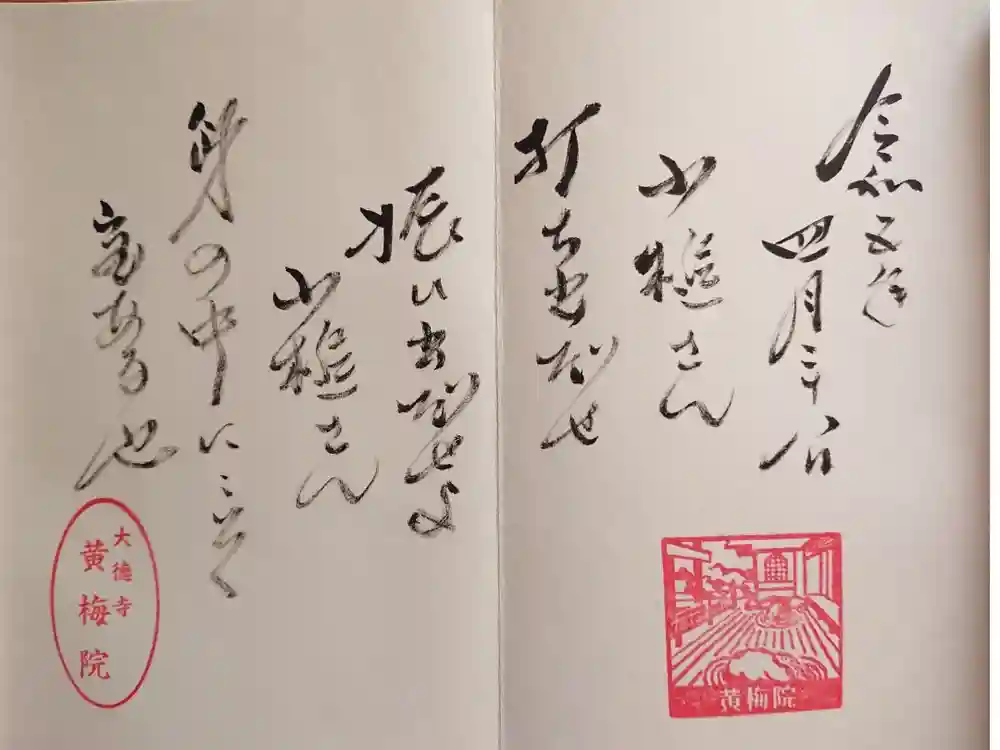 令和五年
四月二十八日
小槌さん
打ち出だせ
振ひ出だせよ
小槌さん
身の中に
宝ある也
黄梅院
大徳寺
黄梅院